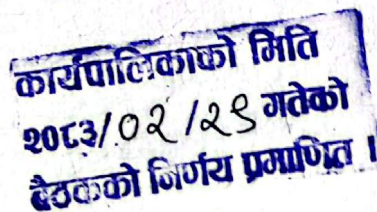 कार्यपालिकाको मिति
२०८३/०२/२९ गतेको
बैठकको निर्णय प्रमाणित ।